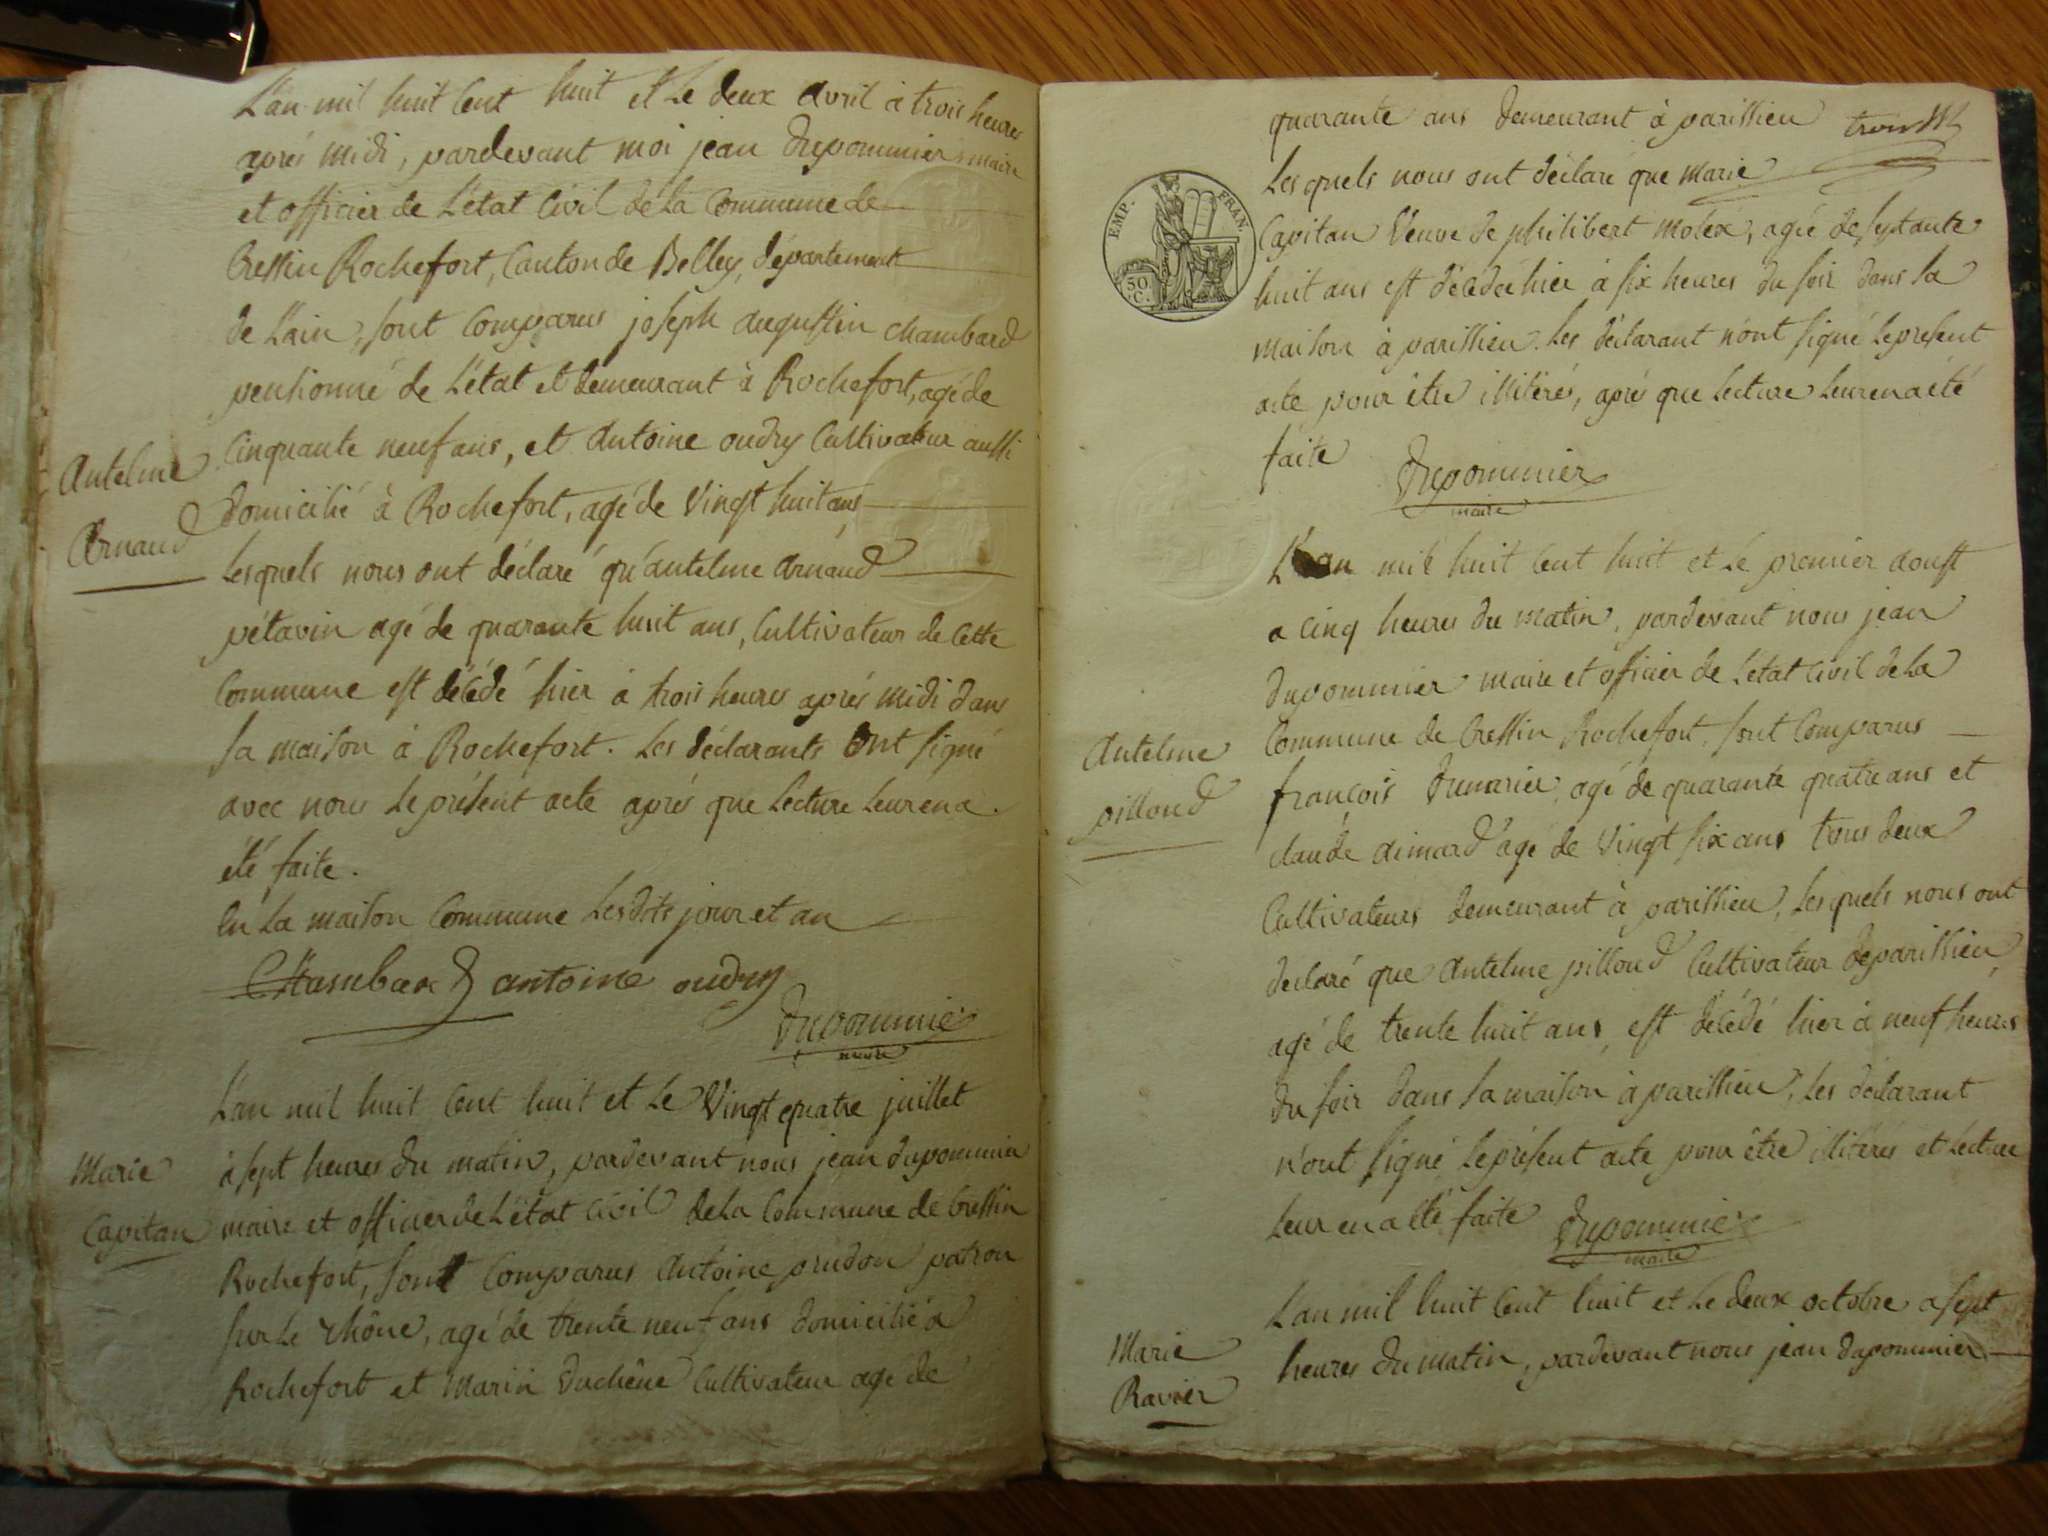 L'an mil huit Cent huit et Le deux avril à trois heures
après midi, pardevant moi jean Dupommier maire
et officier de L'état Civil de La Commune de
Cressin Rochefort, Canton de Belley, département
de L'ain, sont Comparus joseph augustin chambard
pensionné de L'état et demeurant à Rochefort, agé de
Cinquante neuf ans, et antoine oudry Cultivateur aussi
domicilié à Rochefort, agé de Vingt huit ans
Lesquels nous ont déclaré qu'antelme arnaud
pétavin agé de quarante huit ans, Cultivateur de Cette
Commune est décédé hier à trois heures après midi dans
sa maison à Rochefort. Les déclarants ont signé
avec nous Le présent acte après que Lecture Leur en a
été faite.
En La maison Commune Lesdits jour et an
Antelme
Arnaud
Chambard antoine oudry
Dupommier
maire
L'an mil huit Cent huit et Le Vingt quatre juillet
à sept heures du matin, pardevant nous jean dupommier
maire et officier de L'état Civil de La Commune de Cressin
Rochefort, sont Comparus Antoine prudon patron
sur Le rhône, agé de trente neuf ans domicilié à
Rochefort et Marin Duchêne Cultivateur agé de
Marie
Capitan
quarante ans demeurant à parissieu
Les quels nous ont déclaré que Marie
Capitan Veuve de philibert molex, agée de septante
huit ans est décédée hier à six heures du soir dans sa
maison à parissieu. Les déclarant n'ont signé le présent
acte pour être illitérés, après que Lecture Leur en a été
faite
Dupommier
maire
EMP. FRAN.
50. C.
L'an mil huit Cent huit et Le premier aoust
a cinq heures du matin, pardevant nous jean
dupommier maire et officier de L'état Civil de La
Commune de Cressin Rochefort, sont Comparus
françois Dumarier agé de quarante quatre ans et
claude aimard agé de Vingt six ans tous deux
Cultivateurs demeurant à parissieu, Lesquels nous ont
déclaré que Antelme pilloud Cultivateur de parissieu
agé de trente huit ans, est décédé hier à neuf heures
du soir dans sa maison à parissieu, Les déclarant
n'ont signé Le présent acte pour être illitérés et Lecture
Leur en a été faite
Dupommier
maire
Antelme
pilloud
L'an mil huit Cent huit et Le deux octobre a sept
heures du matin, pardevant nous jean dupommier
Marie
Ravier